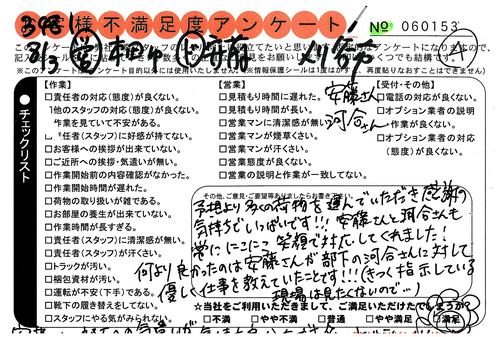 お客様不満足度アンケート
№ 060153
A
安藤さん
河合さん
チェックリスト
【作業】
□責任者の対応(態度)が良くない。
□他のスタッフの対応(態度)が良くない。
□作業を見ていて不安がある。
□責任者(スタッフ)に好感が持てない。
□お客様への挨拶が出来ていない。
□ご近所への挨拶・気遣いが無い。
□作業開始前の内容確認がなかった。
□作業開始時間が遅れた。
□荷物の取り扱いが雑である。
□お部屋の養生が出来ていない。
□作業時間が長すぎる。
□責任者(スタッフ)に清潔感が無い。
□責任者(スタッフ)が汗くさい。
□トラックが汚い。
□梱包資材が汚い。
□運転が不安(下手)である。
□靴下の履き替えをしてない。
□スタッフにやる気がみられない。
【営業】
□見積もり時間に遅れた。
□見積もり時間が長い。
□営業マンに清潔感が無い。
□営業マンが煙草くさい。
□営業マンが汗くさい。
□営業態度が良くない。
□営業の説明と作業が一致してない。
【受付・その他】
□電話の対応が良くない。
□オプション業者の説明
作業が良くない。
□オプション業者の対応
(態度)が良くない。
その他、ご意見・ご要望等ありましたらお書き下さい。
予想より多くの荷物を運んでいただき感謝の
気持ちでいっぱいです!!! 安藤さんも河合さんも
常ににこにこ笑顔で対応してくれました!
何より良かったのは安藤さんが部下の河合さんに対して
優しく仕事を教えていたことです!!!(きつく指示している
現場は見たくないので…)
☆当社をご利用いただきまして、ご満足いただけたでしょうか?
□不満 □やや不満 □普通 □やや満足 □満足